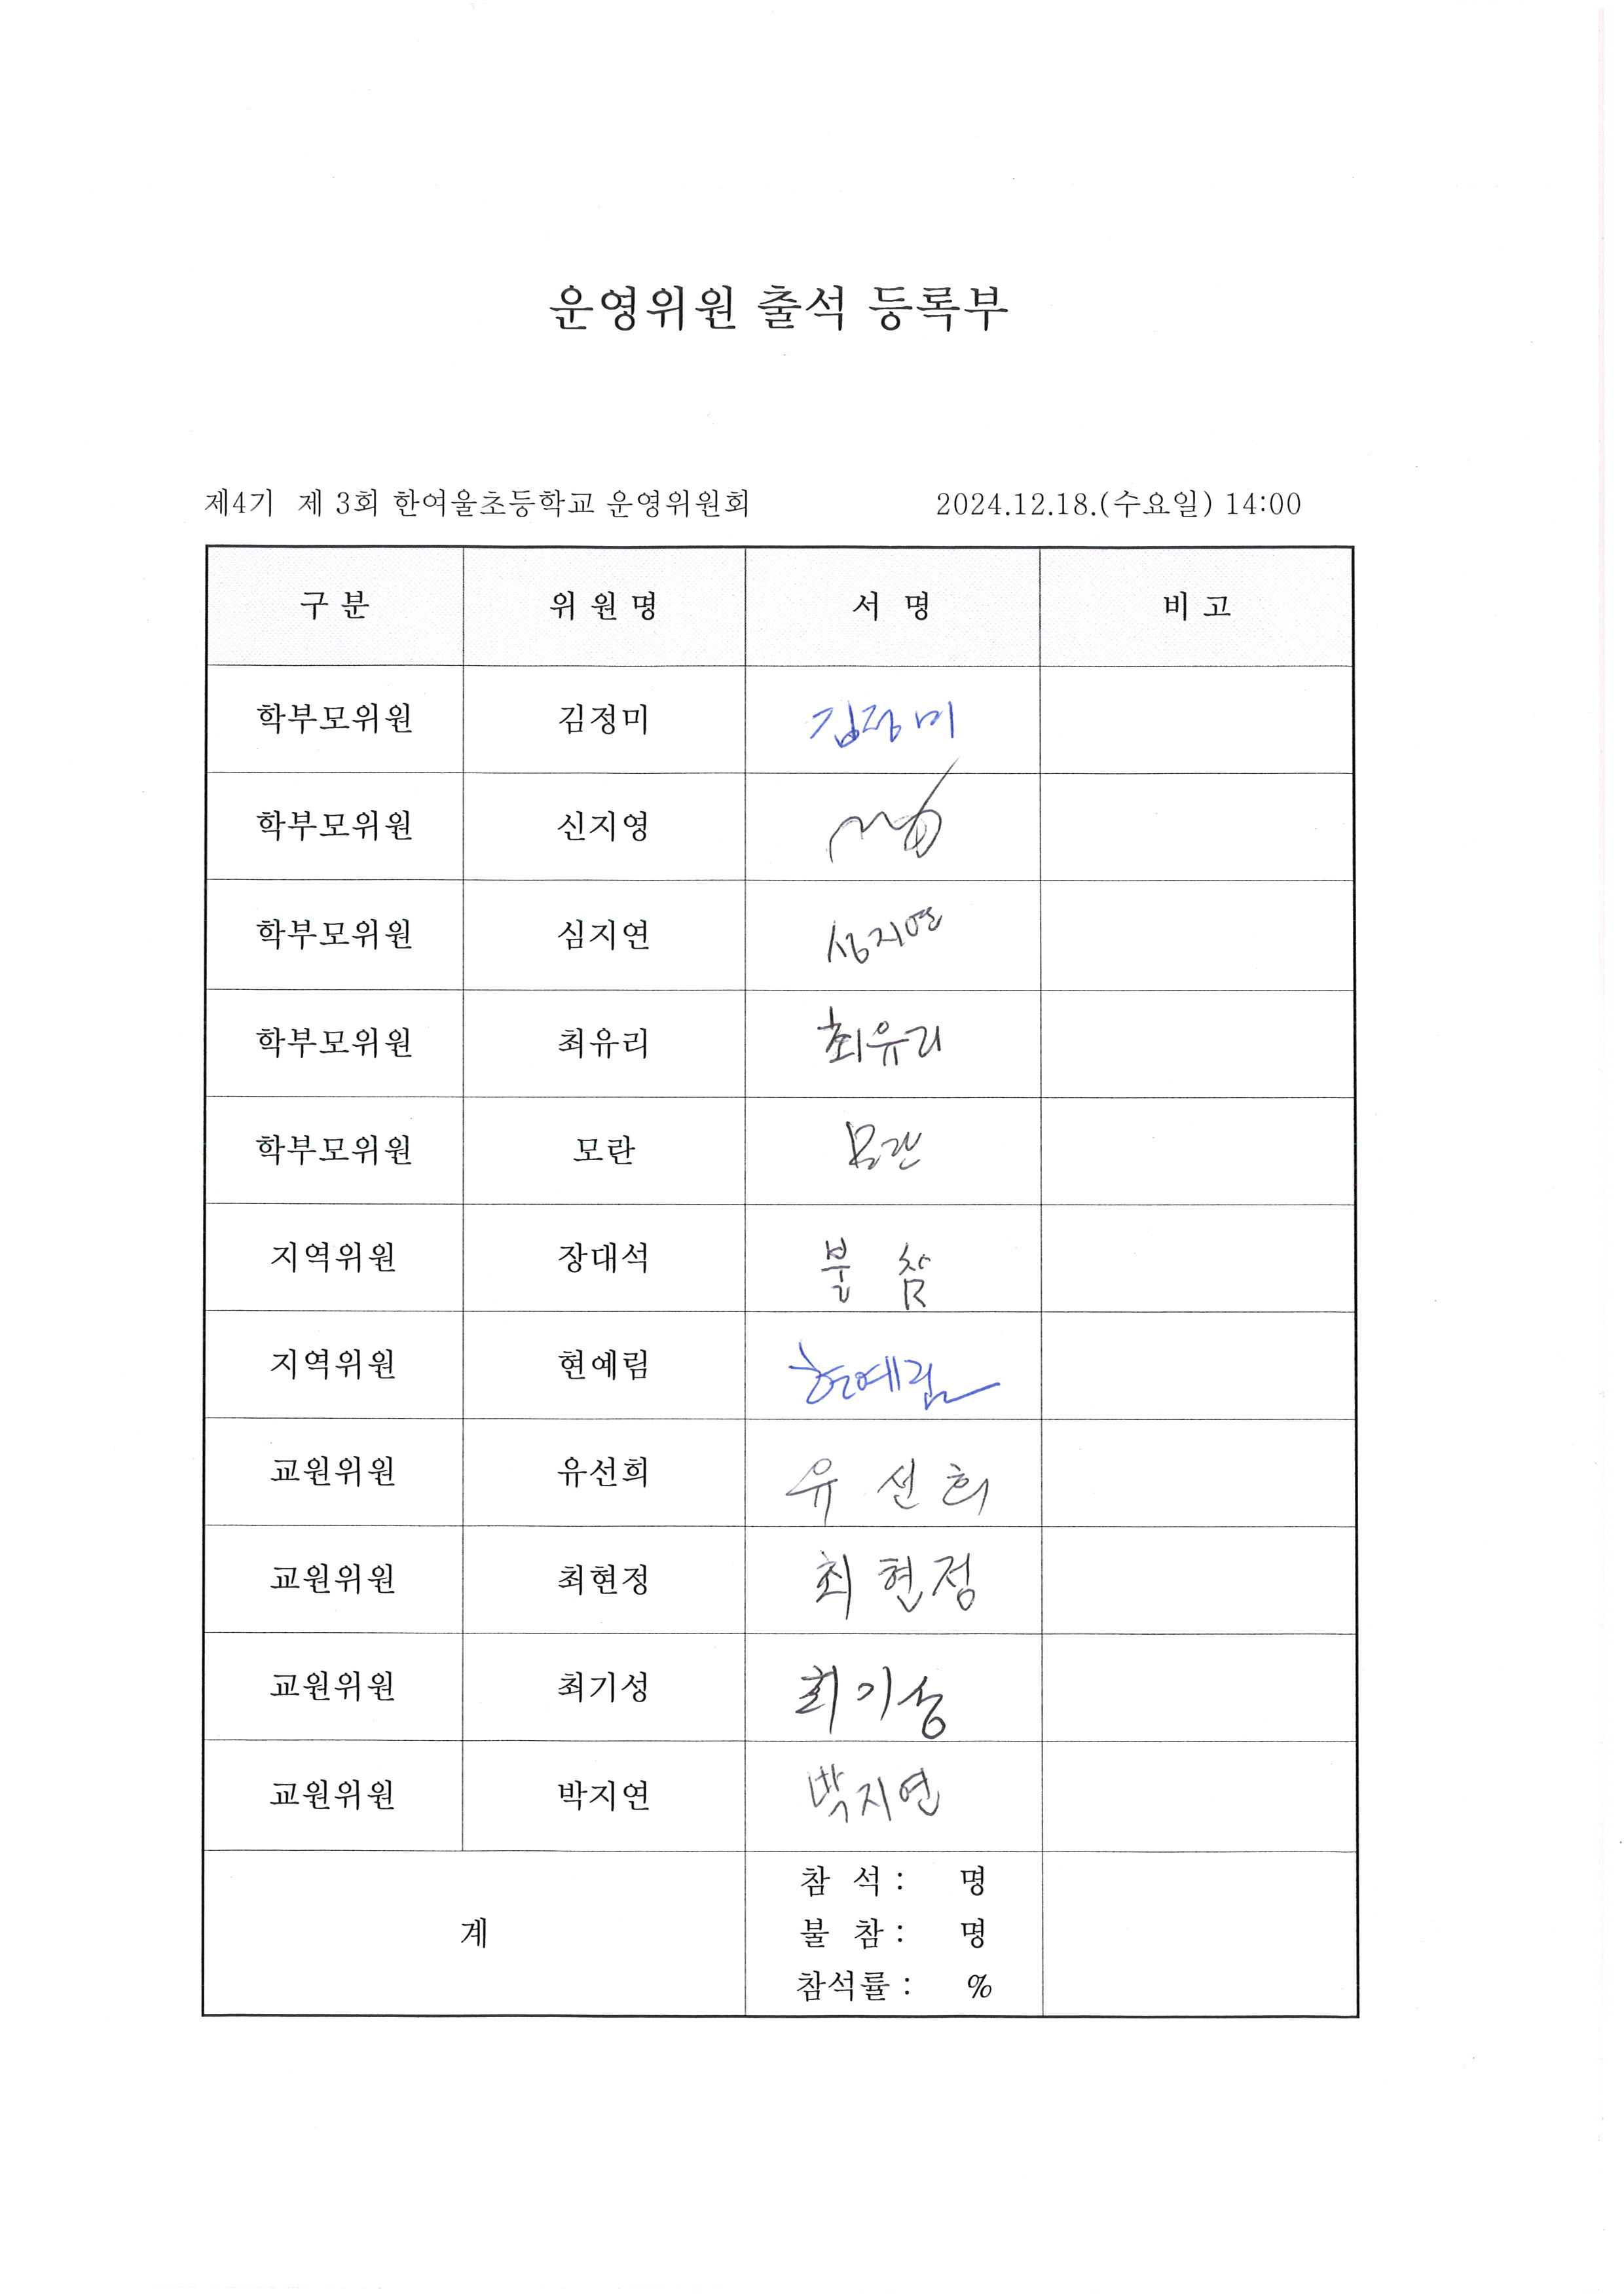 운영위원 출석 등록부
제4기 제 3회 한여울초등학교 운영위원회 2024.12.18.(수요일) 14:00
구 분 위 원 명 서 명 비 고
학부모위원 김정미 김정미
학부모위원 신지영
학부모위원 심지연 심지연
학부모위원 최유리 최유리
학부모위원 모란 모란
지역위원 장대석 불 참
지역위원 현예림 현예림
교원위원 유선희 유 선 희
교원위원 최현정 최 현 정
교원위원 최기성 최기성
교원위원 박지연 박지연
참 석 : 명
계 불 참 : 명
참석률 : %